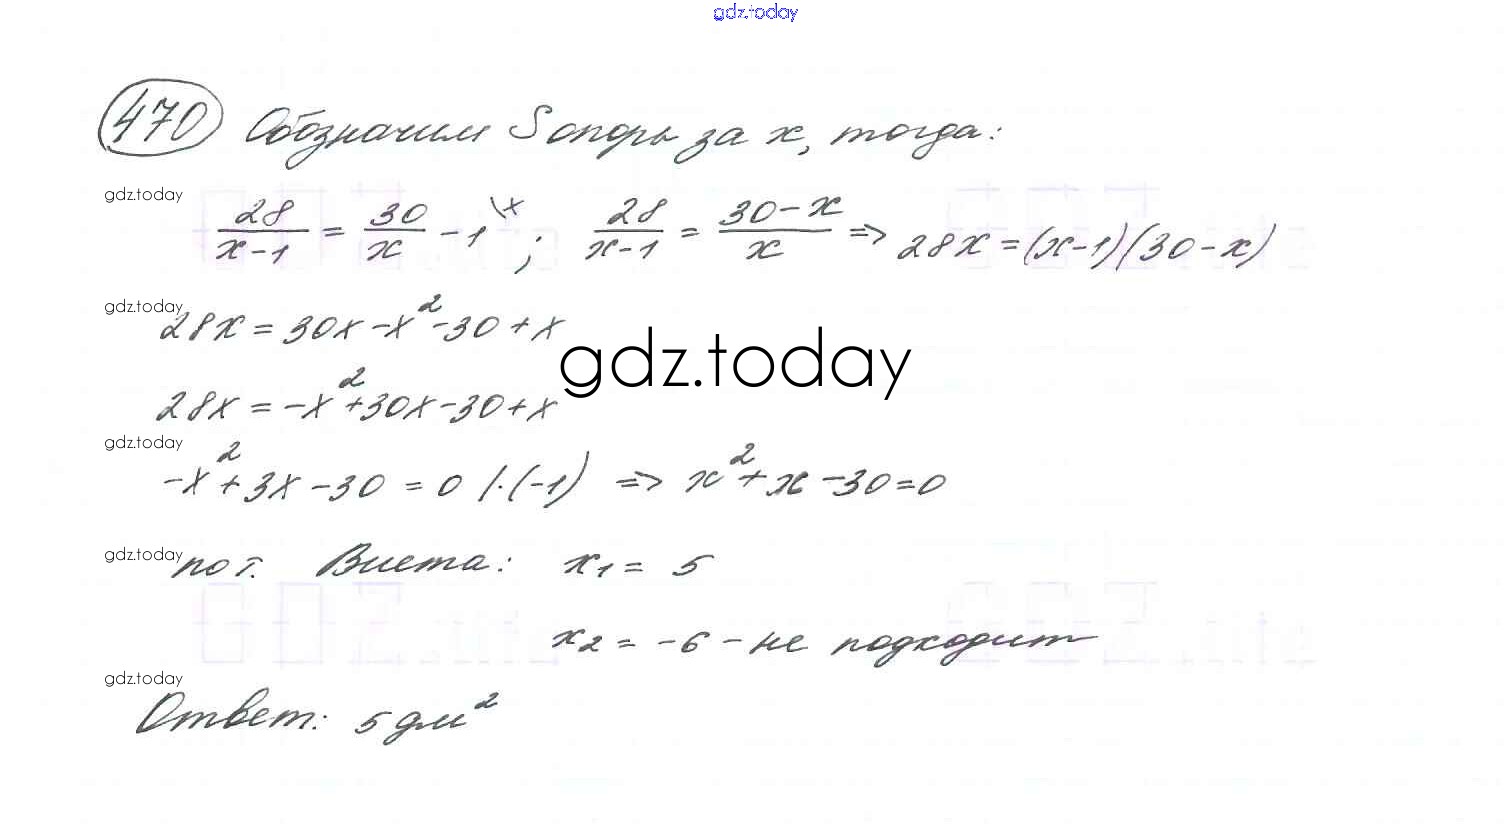 gdz.today
470 Обозначим Sопоры за x, тогда:
gdz.today
28/(x-1) = 30/x - 1 \x ; 28/(x-1) = (30-x)/x => 28x = (x-1)(30-x)
gdz.today
28x = 30x - x² - 30 + x
gdz.today
28x = -x² + 30x - 30 + x
gdz.today
-x² + 3x - 30 = 0 /·(-1) => x² + x - 30 = 0
gdz.today
по т. Виета: x₁ = 5
x₂ = -6 - не подходит
gdz.today
Ответ: 5 дм²